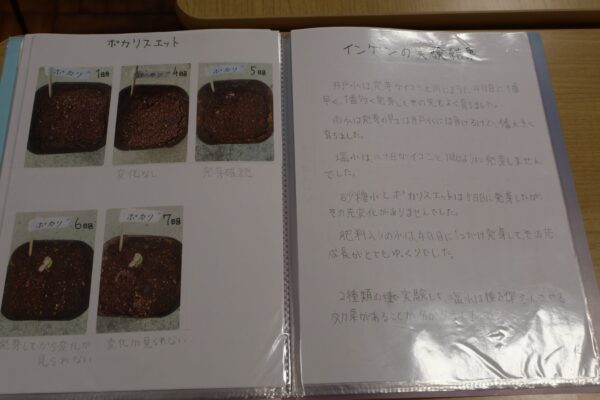 ポカリスエット
ポカリ 1日目
ポカリ 4日目
ポカリ 5日目
変化なし
発芽確認
ポカリ 6日目
ポカリ 7日目
発芽してから変化が
見られない
変化が見られない
インゲンの実験結果
井戸水は、発芽ダイコンと同じように4日目に1番
早く、1番多く発芽してその先もよく育ちました。
雨水は発芽の早さは井戸水には負けるけど、1番大きく
育ちました。
塩水は、ダイコンと同じように発芽しません
でした。
砂糖水とポカリスエットは5日目に発芽したが、
その先変化がありませんでした。
肥料入りの水は、4日目に1つだけ発芽してその先
成長がとてもゆっくりでした。
2種類の種で実験して、塩水は種を
効果があることが分かりました。